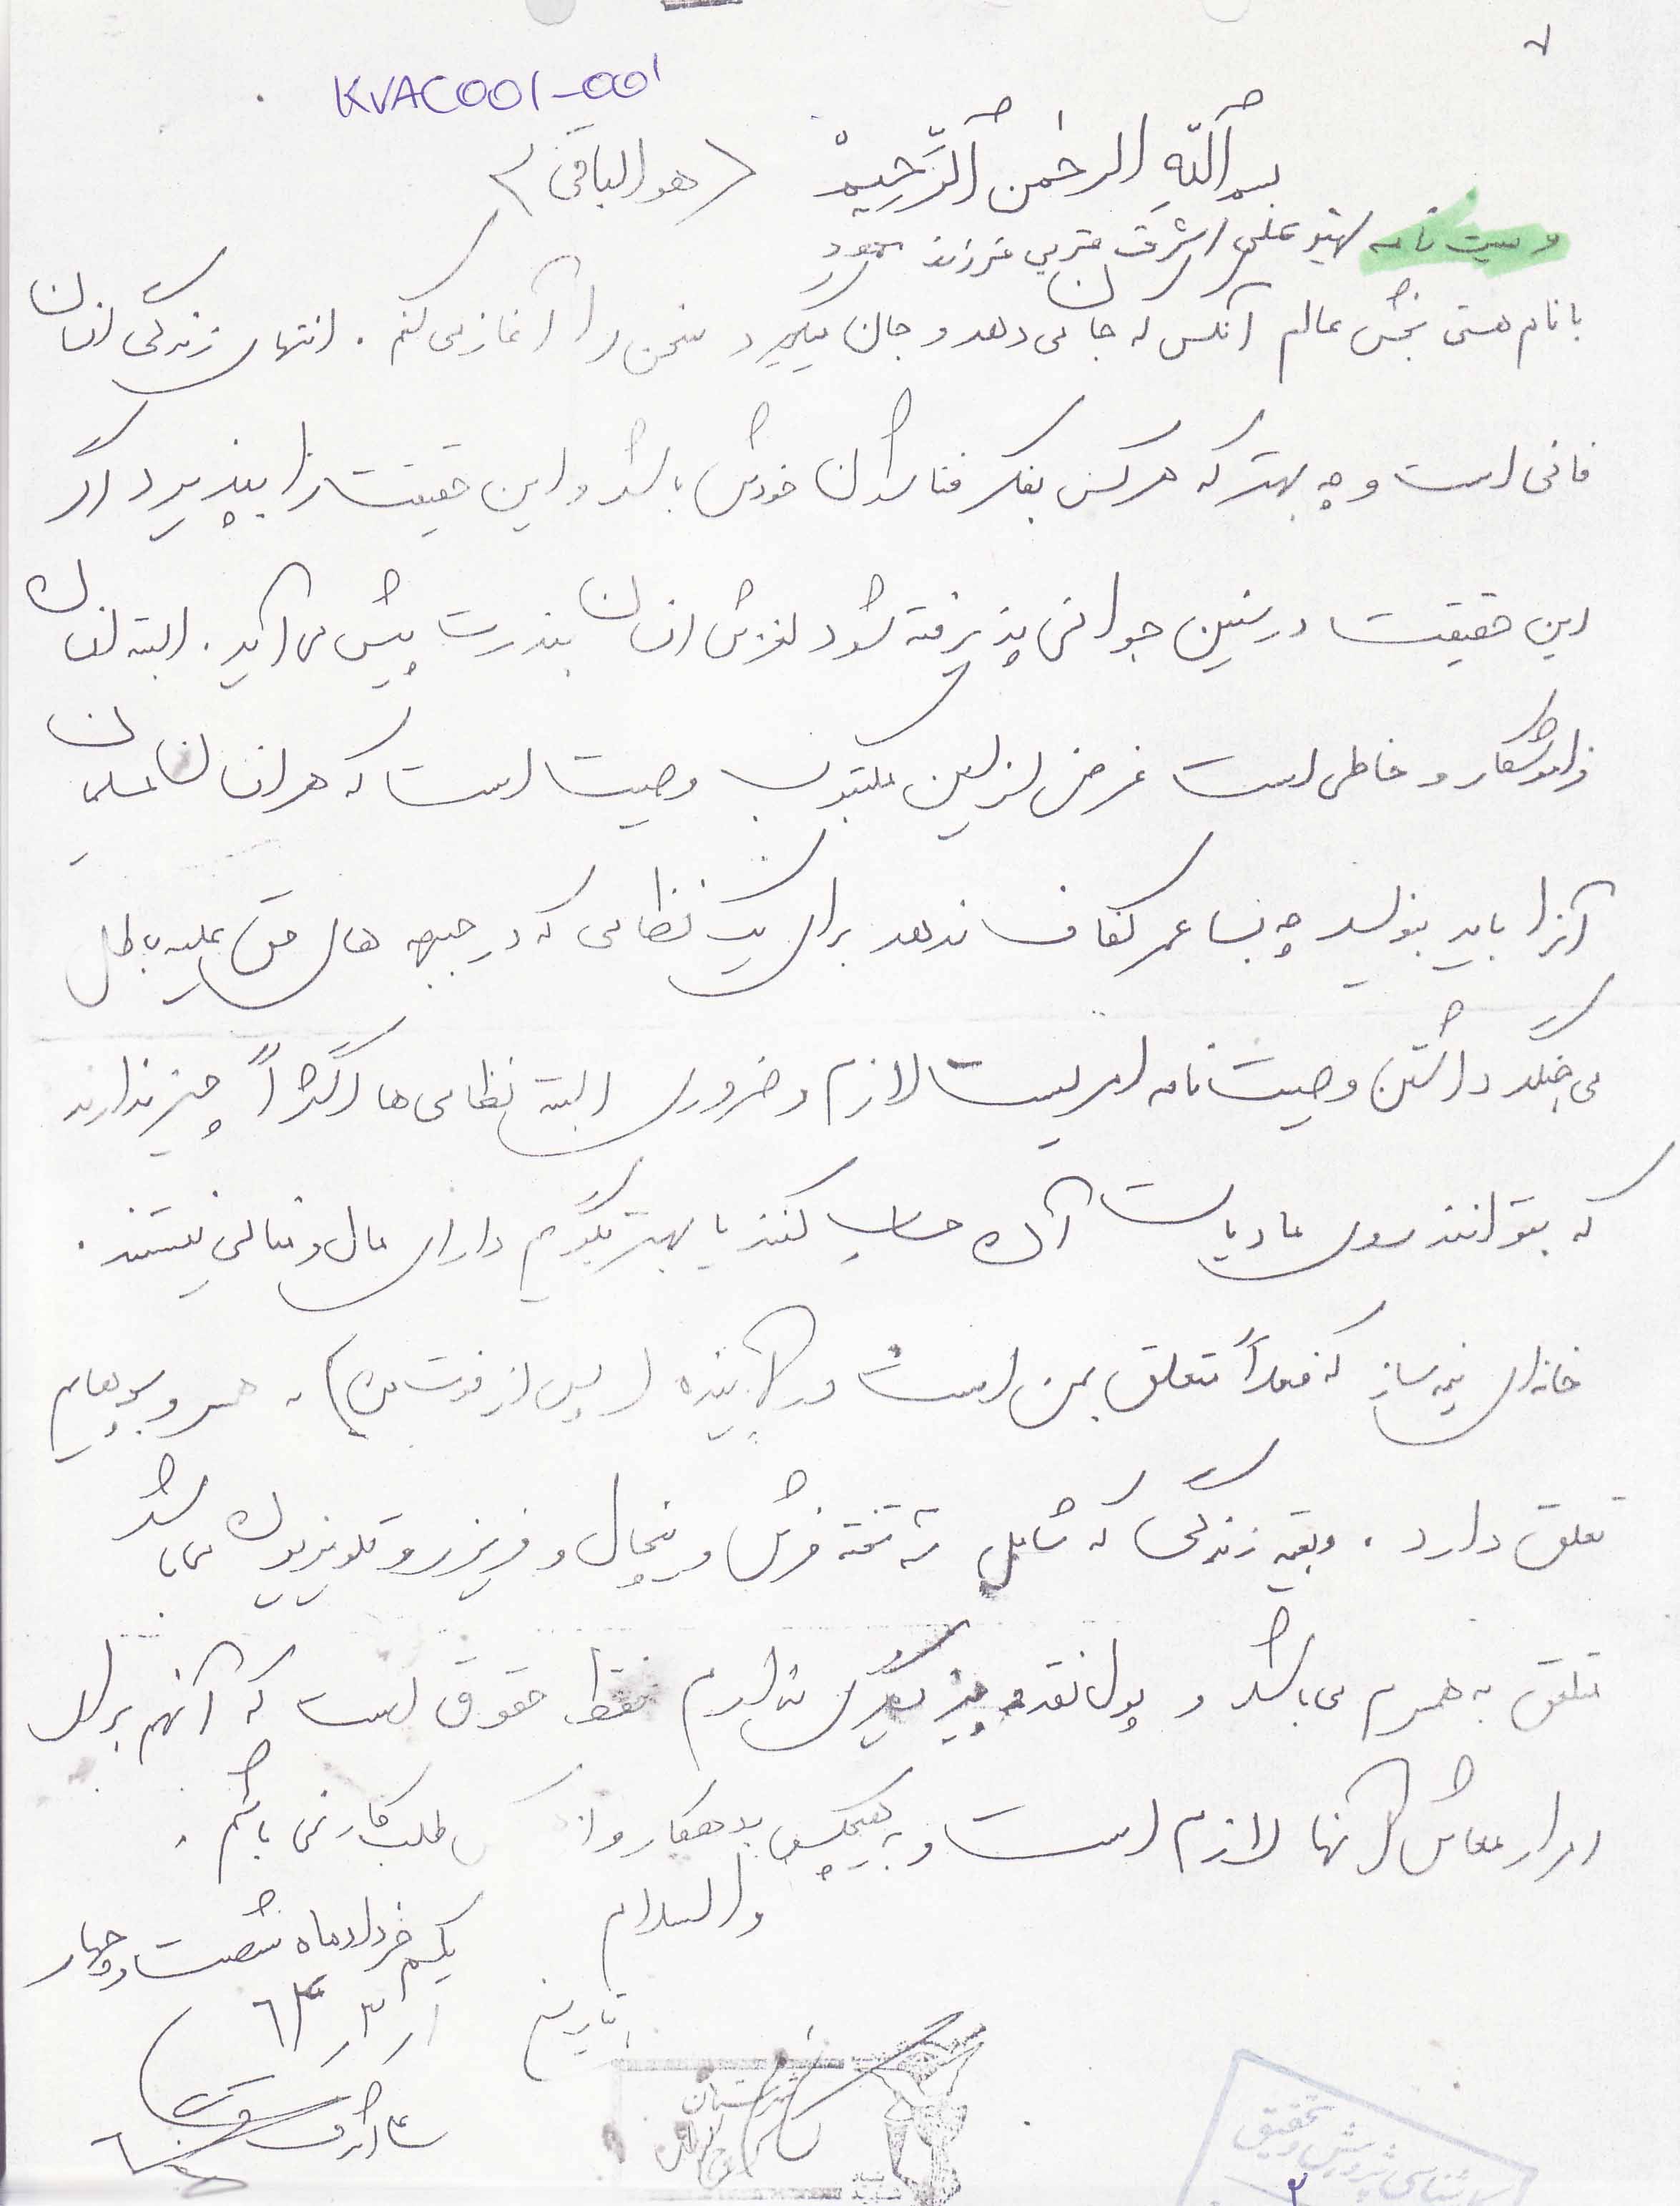 ۷
KVAC001-001
بسم اللّه الرحمن الرّحیم <هوالباقی>
وصیت نامه علی اشرف فرزند محمود
با نام هستی بخش عالم آنکس که جا می دهد و جان میگیرد سخن را آغاز می کنم . انتهای زندگی انسان
فانی است و چه بهتر که هر کس بفکر فنا شدن خودش باشد و این حقیقت را بپذیرد اگر
این حقیقت در سنین جوانی پذیرفته شود لغزش انسان بندرت پیش می آید . البته انسان
فراموشکار و خاطی است غرض از این مکتوب وصیت است که هر انسان مسلمان
آنرا باید بنویسد چه بسا عمر کفاف ندهد برای یک نظامی که در جبهه های حق علیه باطل
می جنگد داشتن وصیت نامه امریست لازم و ضروری البته نظامی ها اکثراً چیزی ندارند
که بتوانند روی مادیات آن حساب کنند یا بهتر بگویم دارای مال و منالی نیستند .
خانه ای نیمه ساز که فعلاً متعلق بمن است در آینده (پس از فوت من) به همسر و بچه هایم
تعلق دارد . و بقیه زندگی که شامل سه تخته فرش و یخچال و فریزر و تلویزیون می باشد
متعلق به همسرم می باشد و پول نقد و چیز دیگری ندارم فقط حقوق است که آنهم برای
امرار معاش آنها لازم است و به هیچکس بدهکار و از کسی طلب کار نمی باشم .
والسلام
یکم خرداد ماه شصت و چهار
بتاریخ ۱ ر ۳ ر ۶۴
علی اشرف
کارشناسی پژوهش و تحقیق
۲